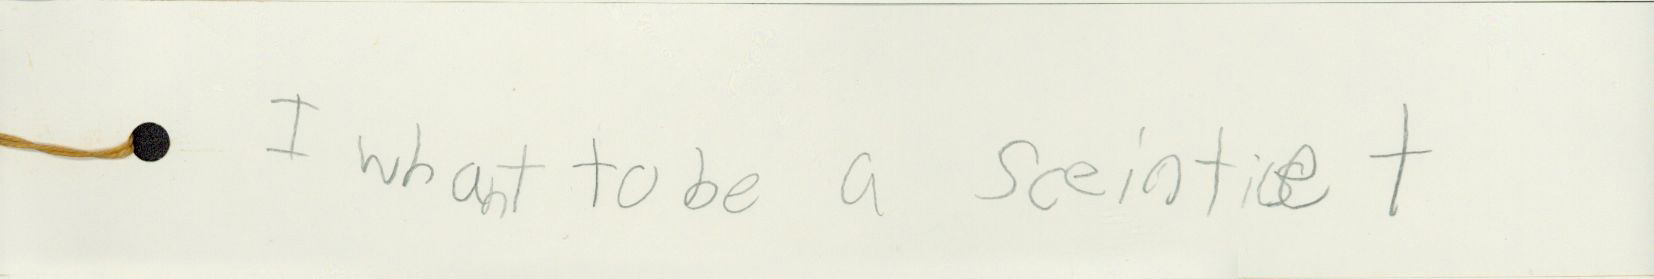 I whant to be a sceintist